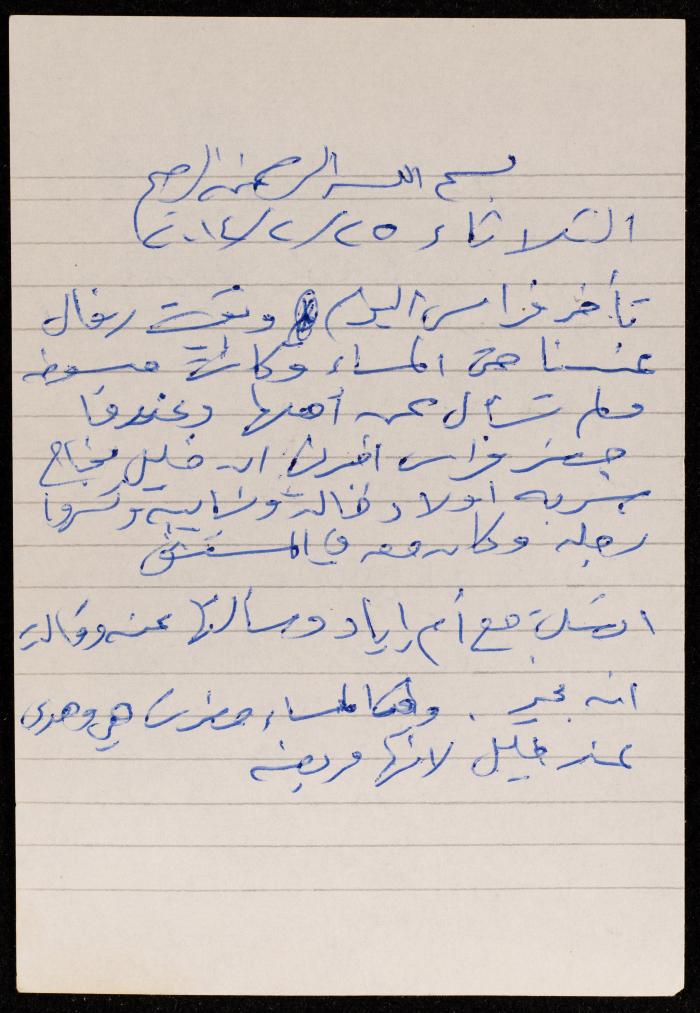 بسم الله الرحمن الرحيم
الثلاثاء ٢٥/٢/٢٠١٤
تأخر فراس اليوم وبقيت رفال
عندنا حتى المساء وكانت مبسوطة
ولم تسأل عن أهلها وعندما
حضر فراس اخبرنا ان خليل
ضربه اولاد خالته وكسروا
رجله وكان معه في المستشفى
اتصلت مع أم إياد وسألتها عنه وقالت
انه بخير . وفي المساء حضرت هي وهدى
عند خليل لانها مريضة